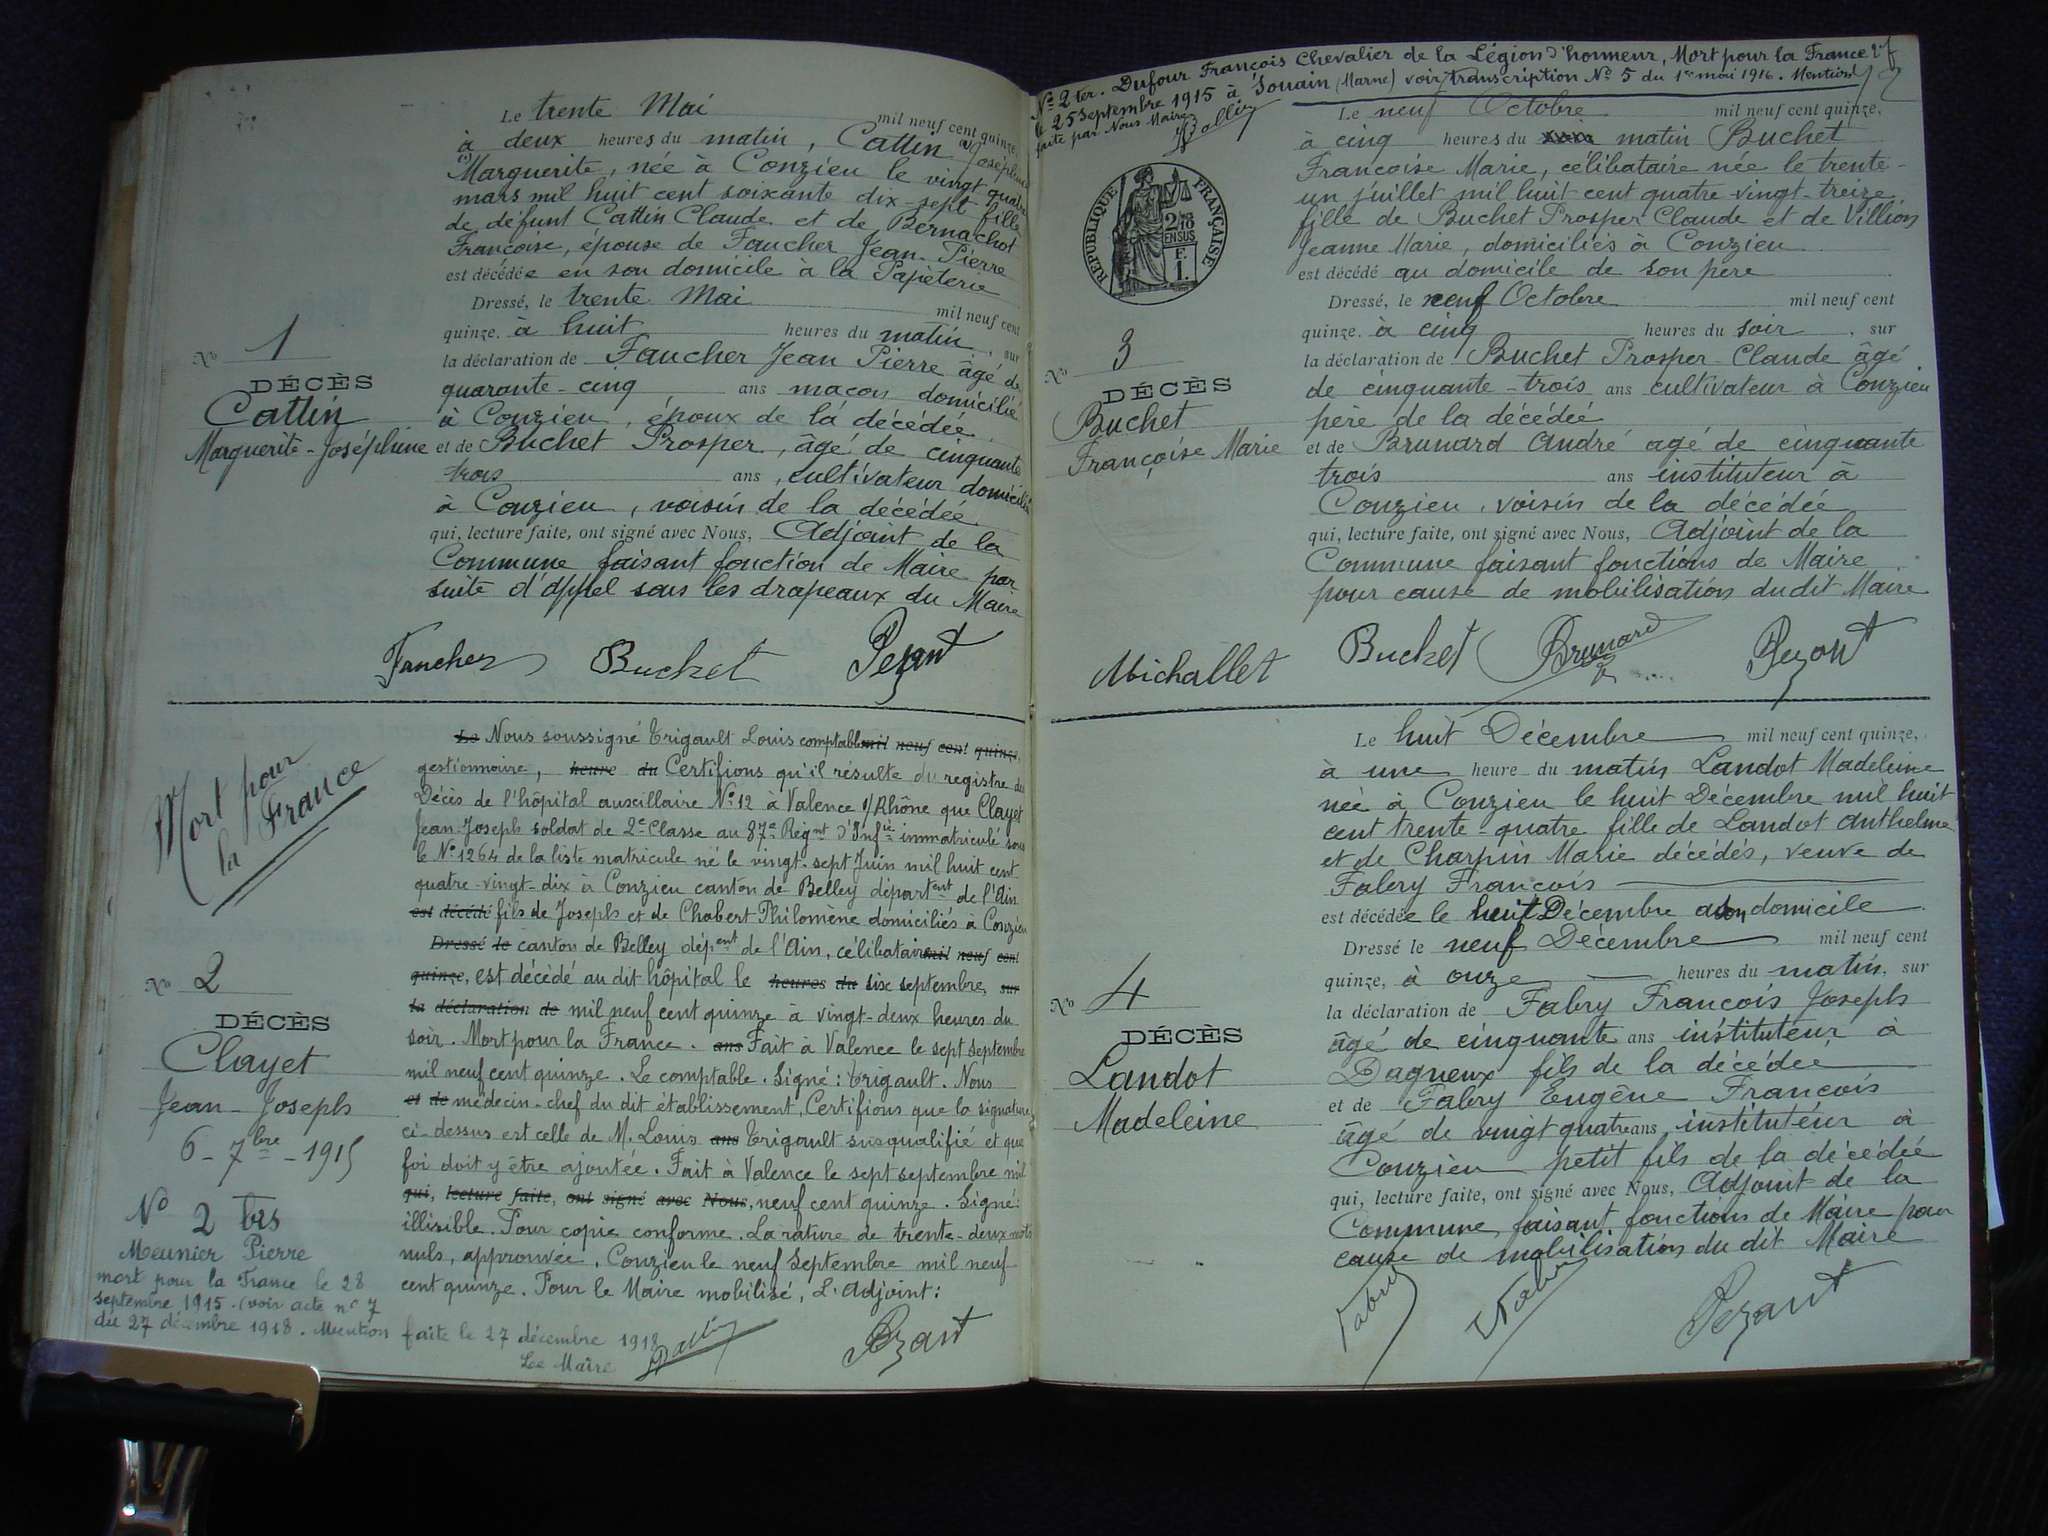 Le trente Mai mil neuf cent quinze,
à deux heures du matin, Cattin (1) Joséphine
(1) Marguerite, née à Conzieu le vingt quatre
mars mil huit cent soixante dix-sept fille
de défunt Cattin Claude et de Bernachot
Françoise, épouse de Faucher Jean-Pierre
est décédée en son domicile à la Papèterie
Dressé, le trente Mai mil neuf cent
quinze. à huit heures du matin, sur
la déclaration de Faucher Jean Pierre âgé de
quarante-cinq ans maçon domicilié
à Conzieu, époux de la décédée,
et de Buchet Prosper, âgé de cinquante
trois ans, cultivateur domicilié
à Conzieu, voisin de la décédée
qui, lecture faite, ont signé avec Nous, Adjoint de la
Commune faisant fonction de Maire par
suite d'appel sous les drapeaux du Maire
Faucher Buchet Pezant
No 1
DÉCÈS
Cattin
Marguerite-Joséphine
Mort pour
la France
No 2
DÉCÈS
Clayet
Jean-Joseph
6-7bre-1915
Le Nous soussigné Trigault Louis comptable mil neuf cent quinze,
gestionnaire, heure du Certifions qu'il résulte du registre des
Décès de l'hôpital auxillaire No 12 à Valence s/Rhône que Clayet
Jean-Joseph soldat de 2e Classe au 87e Régmt d'Infie immatriculé sous
le No 1264 de la liste matricule né le vingt-sept Juin mil huit cent
quatre-vingt-dix à Conzieu canton de Belley départent de l'Ain
est décédé fils de Joseph et de Chabert Philomène domiciliés à Conzieu
Dressé le canton de Belley dépent de l'Ain, célibataire mil neuf cent
quinze, est décédé au dit hôpital le heures du six septembre, sur
la déclaration de mil neuf cent quinze à vingt-deux heures du
soir. Mort pour la France. ans Fait à Valence le sept septembre
mil neuf cent quinze. Le comptable. Signé: Trigault. Nous
et de médecin-chef du dit établissement, Certifions que la signature
ci-dessus est celle de M. Louis ans Trigault susqualifié et que
foi doit y être ajoutée. Fait à Valence le sept septembre mil
qui, lecture faite, ont signé avec Nous, neuf cent quinze. Signé:
illisible. Pour copie conforme. La rature de trente-deux mots
nuls, approuvée. Conzieu le neuf Septembre mil neuf
cent quinze. Pour le Maire mobilisé, L'adjoint:
Pezant
No 2 bis
Meunier Pierre
mort pour la France le 28
septembre 1915. (voir acte no 7
du 27 décembre 1918. Mention faite le 27 décembre 1918
Le Maire
No 2 ter. Dufour François Chevalier de la Légion d'honneur, Mort pour la France
le 25 Septembre 1915 à Souain (Marne) voir transcription No 5 du 1er mai 1916. Mention
faite par Nous Maire
RÉPUBLIQUE FRANÇAISE
2/10
EN SUS
F.
1.
Le neuf Octobre mil neuf cent quinze,
à cinq heures du matin Buchet
Françoise Marie, célibataire née le trente-
un juillet mil huit cent quatre-vingt-treize
fille de Buchet Prosper Claude et de Villion
Jeanne Marie, domiciliés à Conzieu
est décédé au domicile de son père
Dressé, le neuf Octobre mil neuf cent
quinze. à cinq heures du soir, sur
la déclaration de Buchet Prosper-Claude âgé
de cinquante-trois ans cultivateur à Conzieu
père de la décédée
et de Brunard André agé de cinquante
trois ans instituteur à
Conzieu, voisin de la décédée
qui, lecture faite, ont signé avec Nous, Adjoint de la
Commune faisant fonctions de Maire
pour cause de mobilisation du dit Maire
Michallet Buchet Brunard Pezant
No 3
DÉCÈS
Buchet
Françoise Marie
Le huit Décembre mil neuf cent quinze,
à une heure du matin Landot Madeleine
née à Conzieu le huit Décembre mil huit
cent trente-quatre fille de Landot Anthelme
et de Charpin Marie décédés, veuve de
Fabry François
est décédée le huit Décembre a son domicile
Dressé le neuf Décembre mil neuf cent
quinze, à onze heures du matin, sur
la déclaration de Fabry François Joseph
âgé de cinquante ans instituteur à
Dagneux fils de la décédée
et de Fabry Eugène François
âgé de vingt quatre ans instituteur à
Conzieu petit fils de la décédée
qui, lecture faite, ont signé avec Nous, Adjoint de la
Commune faisant fonctions de Maire pour
cause de mobilisation du dit Maire
Fabry Fabry Pezant
No 4
DÉCÈS
Landot
Madeleine